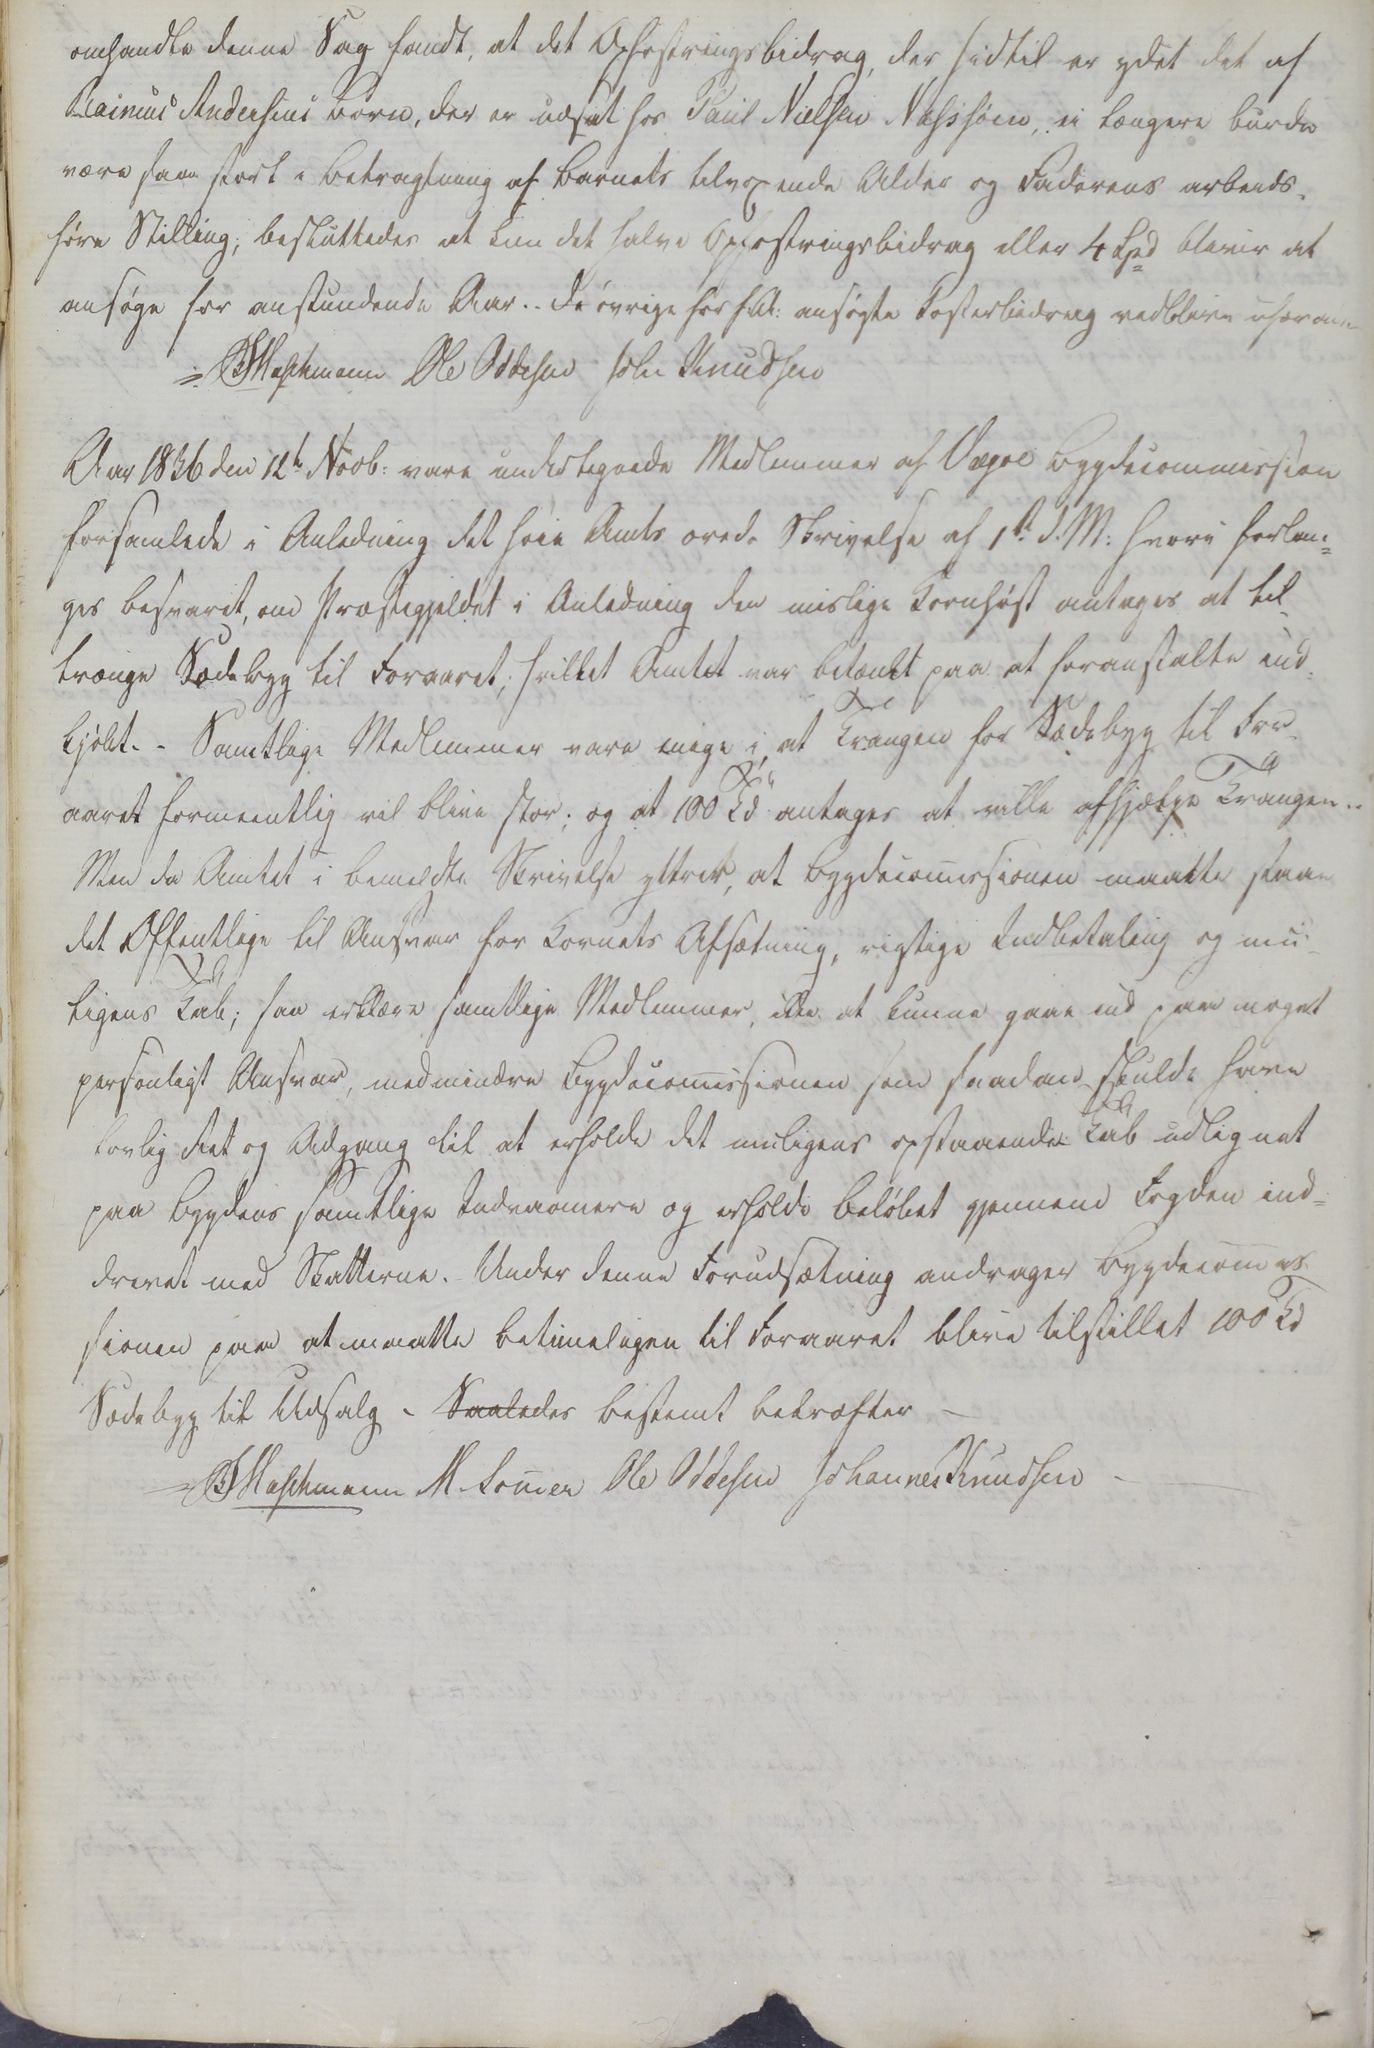 omhandle denne Sag fandt, at det Opfostringsbidrag, der hidtil er ydet det af
Rasmus Andersens Børn, der er udsat hos Paul Nielsen ei længere burde
være saa stort i Betragtning af Barnets tilvoxende Alder og Faderens arbeids-
føre Stilling; besluttedes at kun det halve Opfostringsbidrag eller 4 Spd bliver at
ansøge for anstundende Aar. - De øvrige før ansøgte Fosterbidrag vedblive
BMaschmann Ole Oddesen Joh: Knudsen
Aar 1836 den 12te Novb: vare undertegnede Medlemmer af Vegøe Bygdecommission
forsamlede i Anledning det høie Amts ærede Skrivelse af 1ste d. M: hvori forlan-
ges besvaret, om Præstegjeldet i Anledning den mislige Kornhøst antages at til-
trænge Sædebyg til Foraaret; hvilket Amtet var betænkt paa at foranstalte ind-
kjøbt. - Samtlige Medlemmer vare enige i, at Trangen for Sædebyg til For-
aaret formeentlig vil blive stor; og at 100 Td antages at ville afhjælpe Trangen. -
Men da Amtet i bemeldte Skrivelse yttrer, at Bygdecommissionen maatte staae
det Offentlige til Ansvar for Kornets Afsætning, rigtige Indbetaling og mu-
ligens Tab; saa erklære samtlige Medlemmer, ikke at kunne gaae ind paa noget
personligt Ansvar, medmindre Bygdecommissionen som saadan skulde have
lovlig Ret og Adgang til at erholde det muligens opstaaende Tab udlignet
paa Bygdens samtlige Indvaanere og erholde Beløbet gjennem Fogden ind-
drevet med Skatterne. - Under denne Forudsætning andrager Bygdecommis-
sionen paa at maatte betimeligen til Foraaret blive tilstillet 100 Td
Sædebyg til Udsalg - Saaledes bestemt bekræfter -
BMaschmann M. Sommer Ole Oddesen Johannes Knudsen